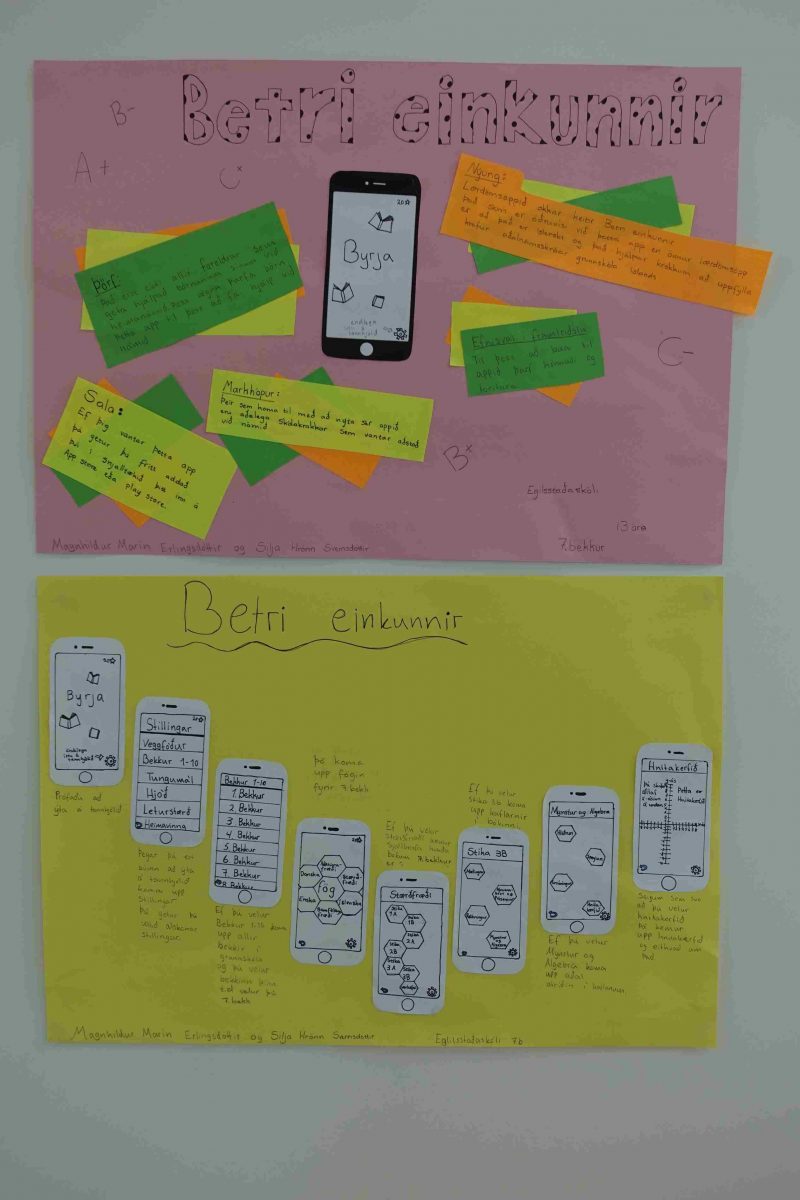 Betri einkunnir
B-
A+
C+
Þörf:
Það eru ekki allir foreldrar sem
geta hjálpað börnunum sínum við
heimanámið. Þess vegna þarfa börn
þetta app til þess að fá hjálp við
námið
20
Byrja
endilega
Nýung:
Lærdómsappið okkar heitir Betri einkunnir
Það sem er öðruvísi við þetta app en önnur lærdómsöpp
er að það er íslenskt og það hjálpar krökkum að uppfylla
kröfur aðalnámskrár grunnskóla Íslands
Efnisval í frumgerðslu:
Til þess að búa til
appið þarf hönnuði og
forritara
C-
Sala:
Ef þig vantar þetta app
þá getur þú fritt addað
því í snjalltækið þitt inn á
App store eða play store.
Markhópur:
Þeir sem koma til með að nýta sér appið
eru aðalega skólakrakkar sem vantar aðstoð
við námið
B+
Egilsstaðaskóli
13 ára
7.bekkur
Magnhildur Marín Erlingsdóttir og Silja Hrönn Sverrisdóttir
Betri einkunnir
20
Byrja
endilega
Prófaðu að
ýta á tannhjólið
Stillingar
Veggfóður
Bekkur 1-10
Tungumál
Hljóð
Leturstærð
Heimavinna
Þegar þú ert
búinn að ýta
á tannhjólið
koma upp
stillingar
Þú getur þá
valið
stillingar
Bekkur 1-10
1. Bekkur
2. Bekkur
3. Bekkur
4. Bekkur
5. Bekkur
6. Bekkur
7. Bekkur
8. Bekkur
Ef þú velur
Bekkur 1-10 koma
upp allir
bekkir í
grunnskóla
og þú velur
bekkinn þinn
t.d velur þú
7. bekk
Þá koma
upp fögin
fyrir 7. bekk
Danska
Enska
Fög
Íslenska
Ef þú velur
7. bekkur
er
Stærðfræði
Stika
1A
Stika
1B
Stika
2A
Stika
2B
Stika
3A
Stika
3B
Ef þú velur
Stika 3B koma
upp kaflarnir
í bókinni
Stika 3B
Mynstur og
Algebra
Ef þú velur
Mynstur og
Algebra koma
upp aðal
atriðin í kaflanum
Mynstur og Algebra
Hnitakerfið
Þetta er
Hnitakerfið
Segjum sem svo
að þú velur
hnitakerfið
þá kemur
upp hnitakerfið
og eitthvað um
það
Magnhildur Marín Erlingsdóttir og Silja Hrönn Sverrisdóttir
Egilsstaðaskóli 7.b